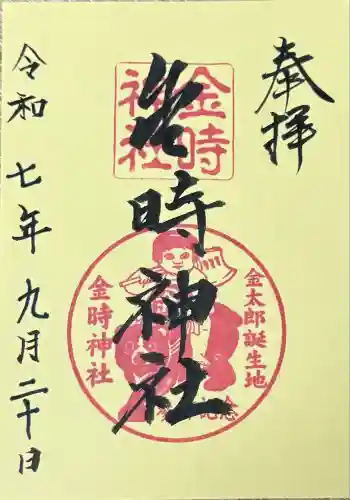 奉拝
金時神社
令和七年九月二十日
金時神社
金太郎誕生地
金時神社
記念